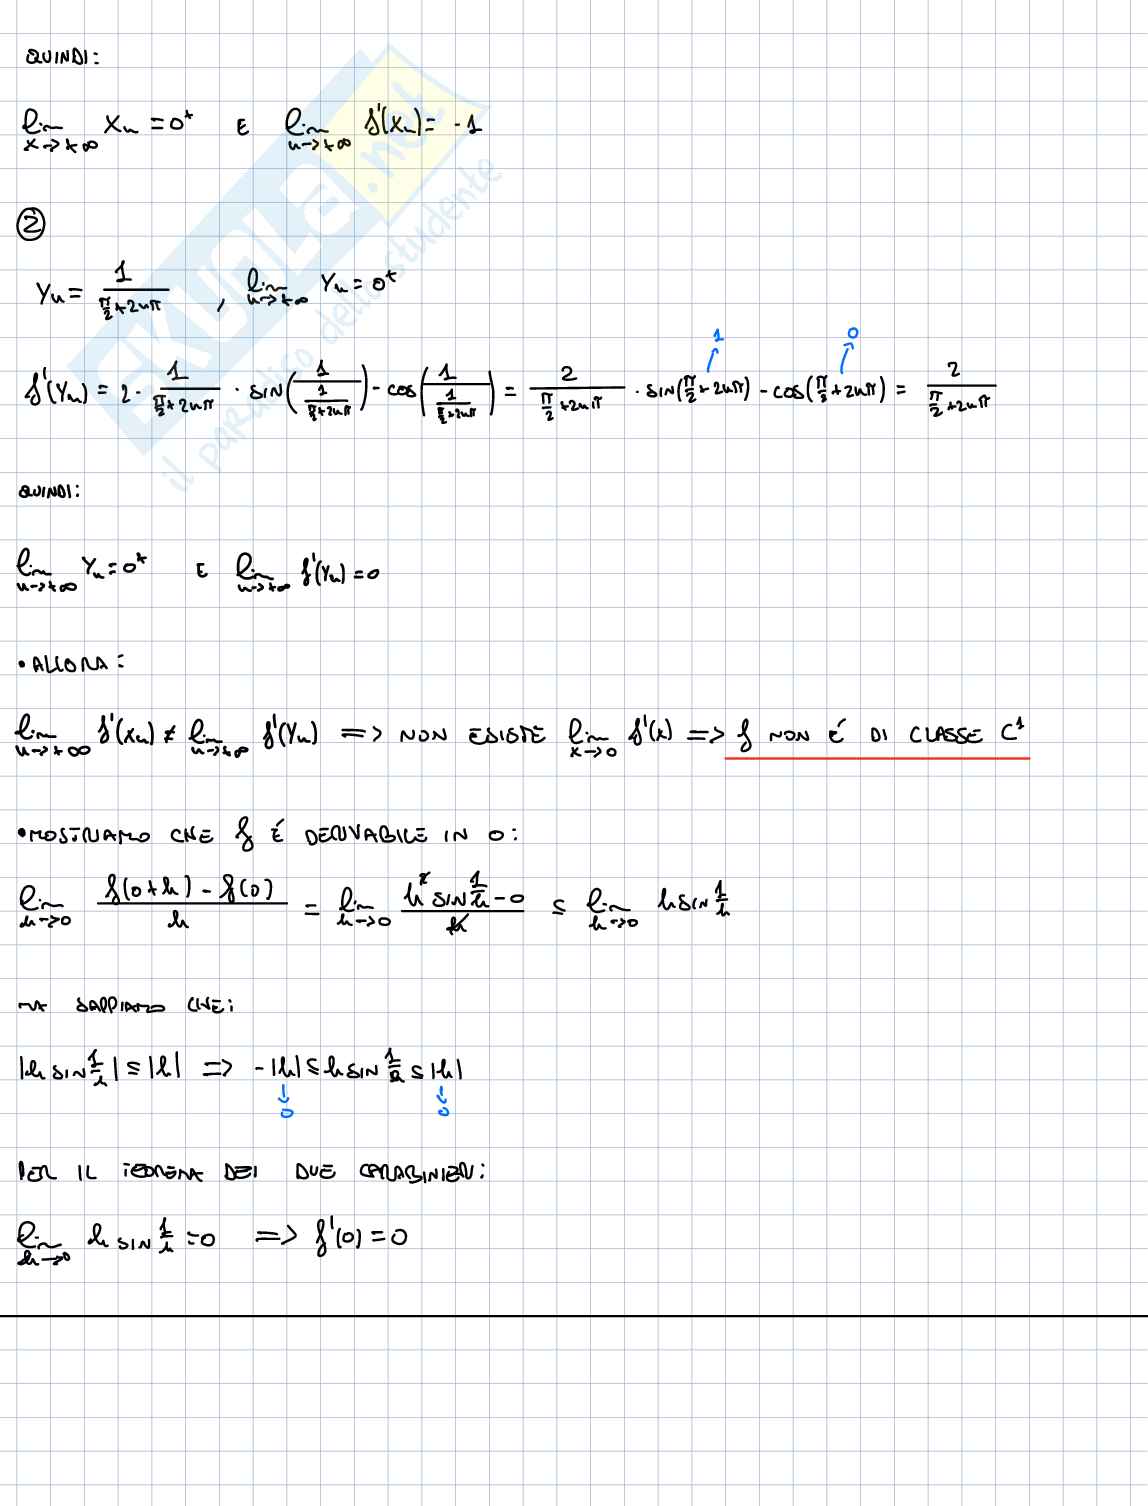 QUINDI:
lim x→+∞ Xn = 0⁺ E lim n→+∞ f'(Xn) = -1
②
Yn = 1/(π/2+2nπ) , lim n→+∞ Yn = 0⁺
1 0
f'(Yn) = 2 · 1/(π/2+2nπ) · SIN(1/(1/(π/2+2nπ))) - COS(1/(1/(π/2+2nπ))) = 2/(π/2+2nπ) · SIN(π/2+2nπ) - COS(π/2+2nπ) = 2/(π/2+2nπ)
QUINDI:
lim n→+∞ Yn = 0⁺ E lim n→+∞ f'(Yn) = 0
• ALLORA:
lim n→+∞ f'(Xn) ≠ lim n→+∞ f'(Yn) => NON ESISTE lim x→0 f'(x) => f NON É DI CLASSE C¹
• MOSTRIAMO CHE f É DERIVABILE IN 0:
lim h→0 (f(0+h) - f(0))/h = lim h→0 (h² SIN 1/h - 0)/h = lim h→0 h SIN 1/h
MA SAPPIAMO CHE:
|h SIN 1/h| ≤ |h| => -|h| ≤ h SIN 1/h ≤ |h|
↓ ↓
0 0
PER IL TEOREMA DEI DUE CARABINIERI:
lim h→0 h SIN 1/h = 0 => f'(0) = 0
SKUOLA.net
il paradiso dello studente